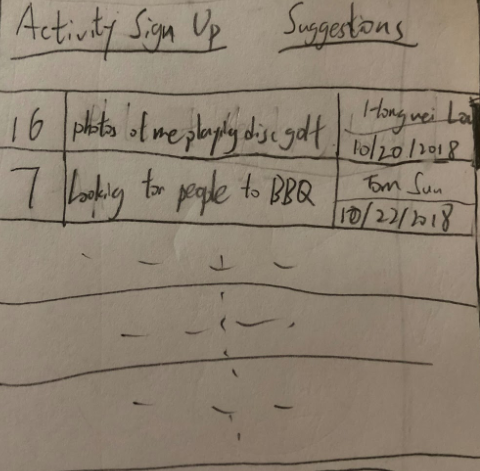 Activity Sign Up Suggestions
16 photos of me playing disc golf Hongwei
10/20/2018
7 Looking for people to BBQ Tom Sun
10/22/2018